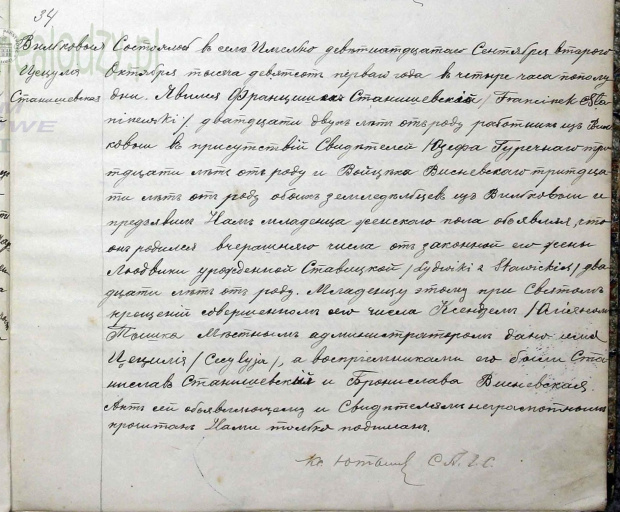 34
Вилковыя Состоялось в селѣ Имелно девятнадцатаго Сентября втораго
Цецилия Октября тысяча девятсот перваго года в четыре часа пополу
Станишевская дни. Явился Францишек Станишевский /Franciszek Sta
niszewski/ двадцати двух лѣт отъ роду работник изъ Вил
ковыи в присутствіи Свидѣтелей Юзефа Гуречнаго три
дцати лѣтъ отъ роду и Войцѣха Висневскаго тридца
ти лѣтъ отъ роду обоих земледѣльцев изъ Вилковыи и
предъявилъ Намъ младенца женскаго пола объявляя, что
онъ родился вчерашняго числа отъ законной его жены
Людвики урожденной Ставицкой /Ludwiki z Stawickich/ два
дцати лѣтъ отъ роду. Младенцу этому при Святомъ
крещеніи совершенномъ его числа Ксендзомъ
Мѣстнымъ администраторомъ дано имя
Цецилія /Cecylyja/, а воспріемниками его были Ста
ниславъ Станишевскій и Бронислава Висневская.
Актъ сей объявляющему и Свидѣтелямъ неграмотнымъ
прочитанъ Нами только подписанъ.
С. А. Г. С.